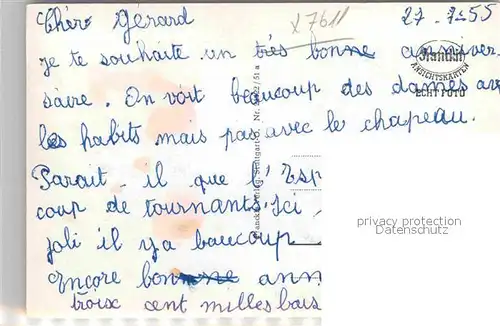 Chér Gerard
x 7611
27-7-55
je te souhaite un très bonne anniver-
saire. On voit beaucoup des dames av
les habits mais pas avec le chapeau.
Parait-il que l'Esp
coup de tournants. Ici,
joli il ya baucoup
Encore bonne ann
troix cent milles bais
Franckh
ANSICHTSKARTEN
ECHT FOTO
privacy protection
Datenschutz